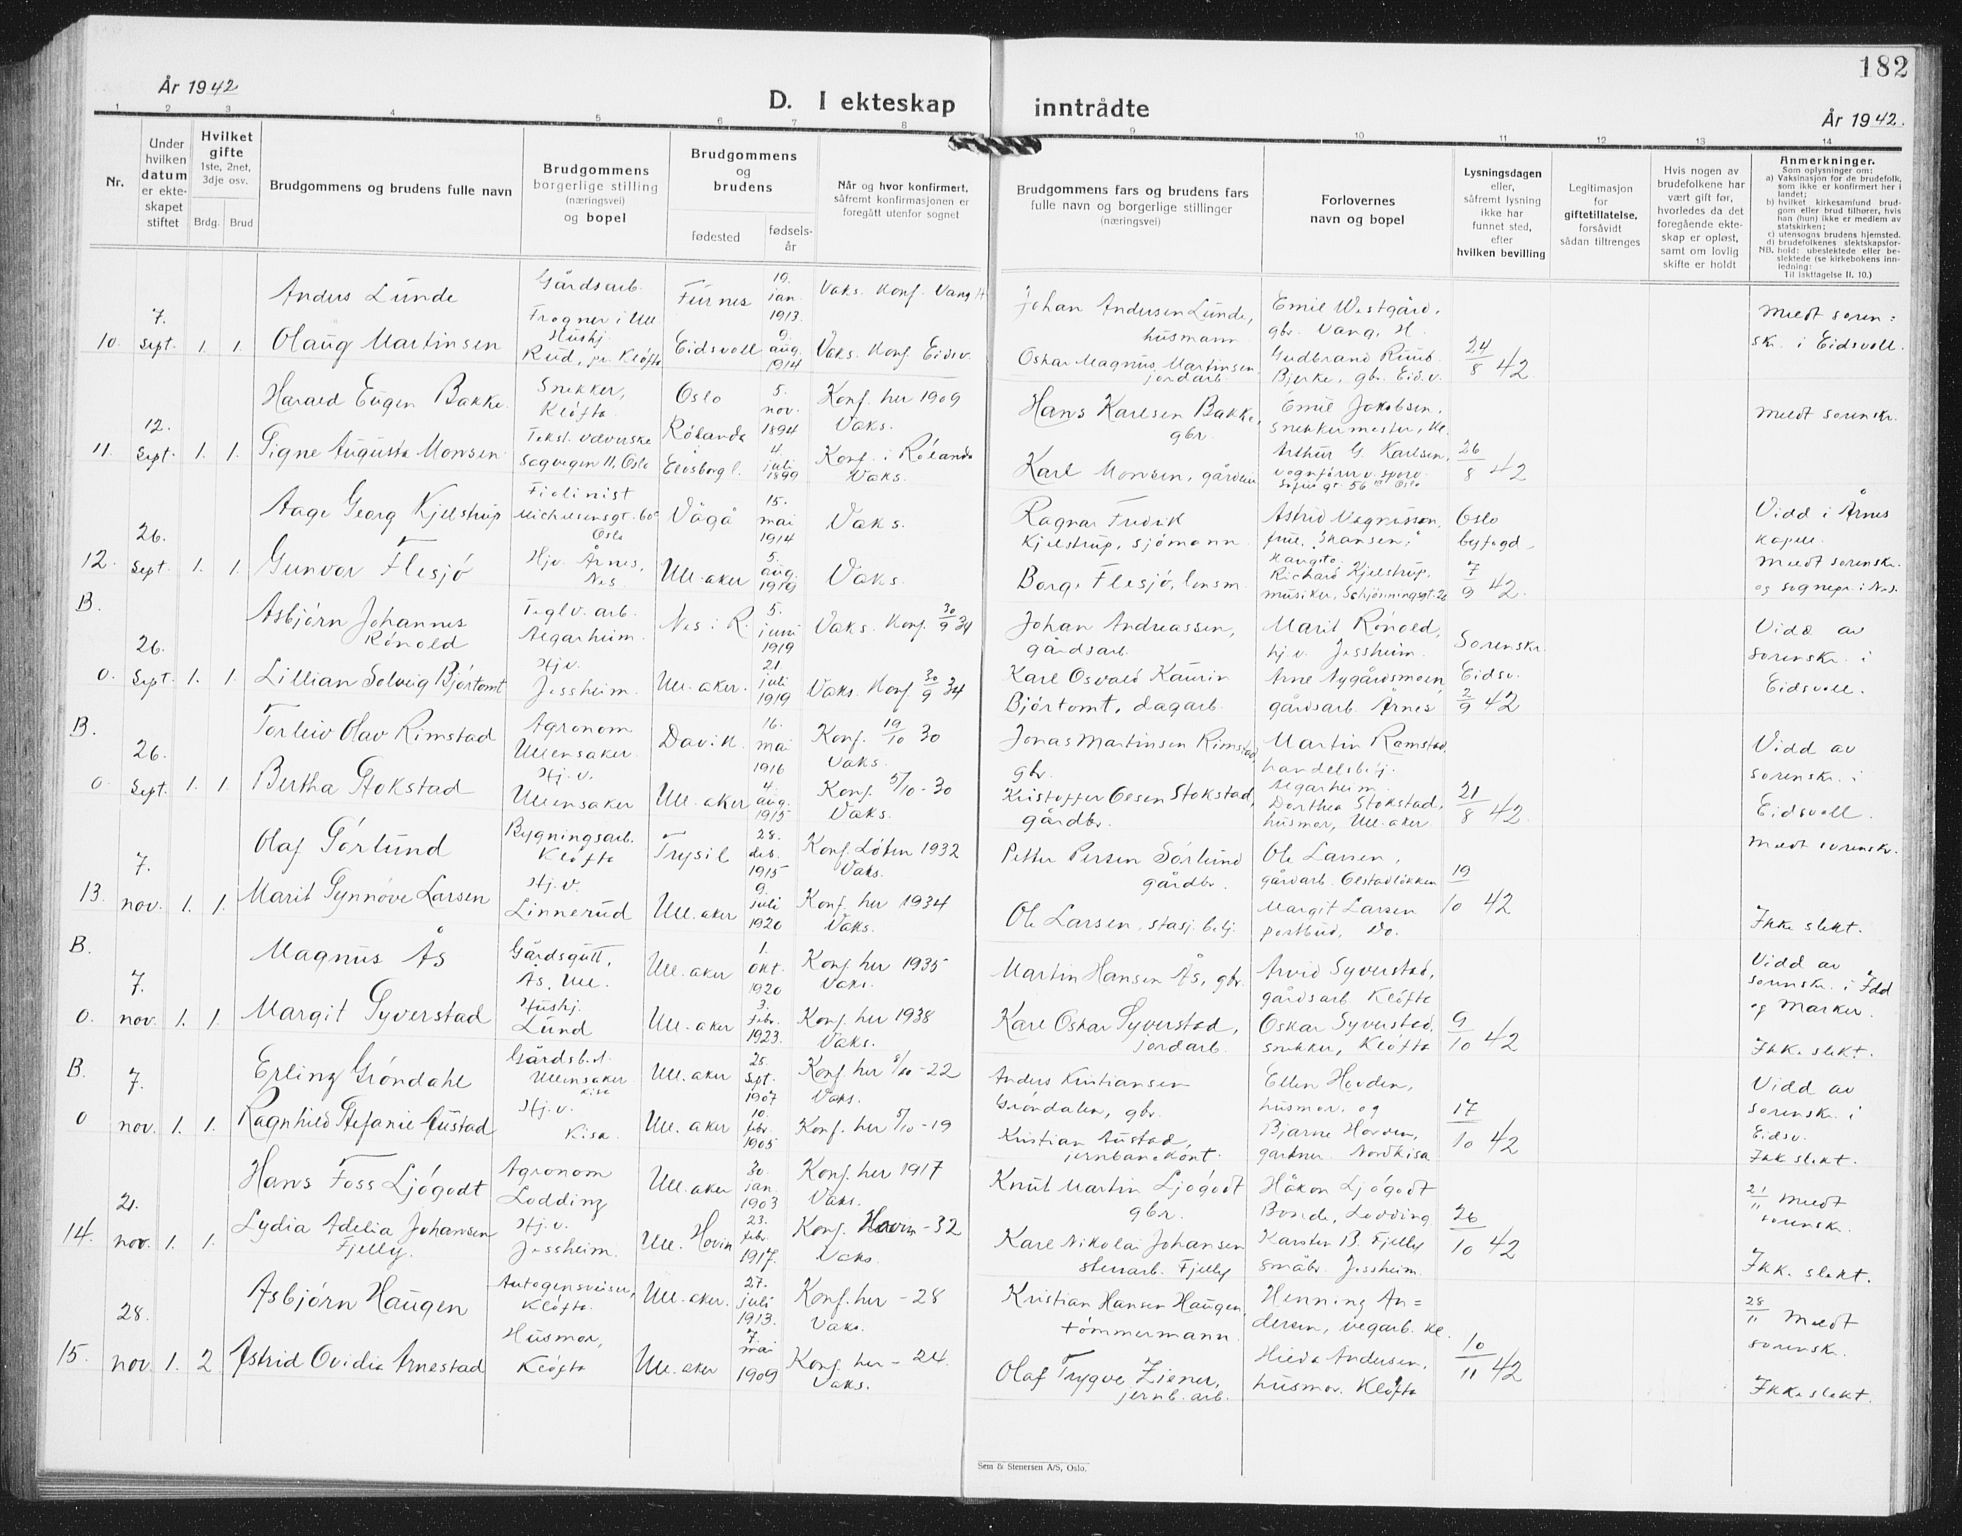 182
År 1942
D. I ekteskap inntrådte
År 1942.
1 2 3 4 5 6 7 8 9 10 11 12 13 14
Nr.
Under hvilken datum er ekteskapet stiftet
Hvilket gifte
1ste, 2net, 3dje osv.
Brdg. Brud
Brudgommens og brudens fulle navn
Brudgommens borgerlige stilling (næringsvei) og bopel
Brudgommens og brudens
fødested
fødsels-år
Når og hvor konfirmert, såfremt konfirmasjonen er foregått utenfor sognet
Brudgommens fars og brudens fars fulle navn og borgerlige stillinger (næringsvei)
Forlovernes navn og bopel
Lysningsdagen eller, såfremt lysning ikke har funnet sted, efter hvilken bevilling
Legitimasjon for giftetillatelse, forsåvidt sådan tiltrenges
Hvis nogen av brudefolkene har vært gift før, hvorledes da det foregående ekteskap er opløst, samt om lovlig skifte er holdt
Anmerkninger.
Som oplysninger om:
a) Vaksinasjon for de brudefolk, som ikke er konfirmert her i landet;
b) hvilket kirkesamfund brudgom eller brud tilhører, hvis han (hun) ikke er medlem av statskirken;
c) utensogns brudens hjemsted.
d) brudefolkenes slektskapsforhold: ubeslektede eller beslektede (se kirkebokens innledning:
NB.
Til iakttagelse II. 10.)
10. 7. sept. 1. 1.
Anders Lunde
Gårdsarb. Frogner i Ull
Furnes
19. jan. 1913.
Vaks. Konf. Vang H
Johan Andersen Lunde, husmann
Emil Westgård, gbr. Vang, H.
24/8 42
Meldt soren: skr. i Eidsvoll.
Olaug Martinsen
Hushj. Rud, pr. Kløfta
Eidsvoll
9. aug. 1914
Vaks. Konf Eidsv.
Oskar Magnus Martinsen, jordarb.
Gudbrand Ruud Bjerke, gbr. Eidv.
11. 12. Sept. 1. 1.
Harald Eugen Bakke.
Snekker, Kløfta.
Oslo
5. nov. 1894
Konf. her 1909 Vaks.
Hans Karlsen Bakke, gbr.
Emil Jakobsen, snekkermester, Kl.
26/8 42
Meldt sorenskr.
Signe Augusta Monsen
Tekst. væverske Sagvegen 11, Oslo
4. juli 1899
Vaks.
Karl Monsen,
Arthur G. Karlsen, vognfører v. sporv. Sofies gt. 56 Oslo
12. 26. Sept. 1. 1.
Aage Georg Kjelstrup
Fiolinist Oslo
Vågå
15. mai 1914
Vaks.
Ragnar Fredrik Kjelstrup, sjømann
Astrid frk. "Skansen,"
Oslo byfogd. 7/9 42.
Vidd i Årnes kapell. Meldt sorenskr. og sognepr. i Nes.
Gunvor Flesjø
Hjv. Årnes, Nes.
Ull.aker
5. aug. 1919
Vaks.
Borge Flesjø, lensm.
Richard Kjelstrup, musiker, Schjønningsgt. 20
B. 0. 26. Sept. 1. 1.
Asbjørn Johannes Rønold
Teglv. arb. Algarheim.
Nes i R.
5. juni 1919
Vaks. Konf. 30/9 34
Johan Andreassen, gårdsarb.
Marit Rønold, hj.v. Jessheim.
Sorenskr. Eidsv. 2/9 42
Vidd av sorenskr. i Eidsvoll.
Lillian Solveig Bjørtomt
Hjv. Jessheim.
Ull.aker.
21 juli 1919
Vaks. Konf 30/9 34
Karl Osvald Kaurin Bjørtomt, dagarb.
Arne Nygårdsmoen gårdsarb. Årnes
B. 0. 26. Sept. 1. 1.
Torleiv Olav Rimstad
Agronom Ullensaker
Davik.
16. mai 1916
Konf. 19/10 30 Vaks.
Jonas Martinsen Rimstad, gbr.
Martin Ramstad, handelsbetj. Algarheim.
21/8 42.
Vidd av sorenskr. i Eidsvoll.
Bertha Stokstad
Hj.v. Ullensaker
Ull.aker
4. aug. 1915
Konf. 5/10-30 Vaks.
Kristoffer Olsen Stokstad, gårdbr.
Dorthea Stokstad, husmor, Ull.aker
13. 7. nov. 1. 1.
Olaf Sørlund
Bygningsarb. Kløfta
Trysil
28. des. 1915
Konf. Løten 1932 Vaks.
Petter Persen Sørlund gårdbr.
Ole Larsen, gårdarb. Olstadløkken
19/10 42
Meldt sorenskr.
Ikke slekt.
Marit Synnøve Larsen
Hj.v. Linnerud
Ull.aker
9. juli 1920
Konf. her 1934 Vaks.
Ole Larsen, stasj. betj.
Margit Larsen postbud, Do.
B. 0. 7. nov. 1. 1.
Magnus Ås
Gårdsgutt, Ås, Ull.
Ull.aker
1. okt. 1920
Konf. her 1935 Vaks.
Martin Hansen Ås, gbr.
Arvid Syverstad, gårdsarb Kløfta
9/10 42
Vidd av sorenskr. i Idd og Marker.
Ikk. slekt.
Margit Syverstad
Hushj. Lund
Ull.aker
3. febr. 1923.
Konf. her 1938 Vaks.
Karl Oskar Syverstad, jordarb.
Oskar Syverstad, snekker, Kløfta
B. 0 7. nov. 1. 1.
Erling Grøndahl
Gårdsb. Ullensaker Kisa
Ull.aker
25. sept. 1907
Konf her 8/10-22 Vaks.
Anders Kristiansen Grøndalen, gbr.
Ellen Hovden, husmor, og
17/10 42
Vidd av sorenskr. i Eidsv.
Ikk slekt.
Ragnhild Stefanie Austad
Hj.v. Kisa.
Ull.aker
10. febr. 1905
Konf. her 5/10-19
Kristian Austad, jernbanekont.
Bjarne Hovden, gartner. Nordkisa
14. 21. nov. 1. 1.
Hans Foss Ljøgodt
Agronom Lodding
Ull.aker
30. jan. 1903
Konf. her 1917 Vaks.
Knut Martin Ljøgodt gbr.
Håkon Ljøgodt Bonde, Lodding
26/10 42
21/11 meldt sorenskr.
Ikk. slekt.
Lydia Adelia Johansen Fjelly.
Hj.v. Jessheim.
Ull. Hovin
23. febr. 1917.
Konf. Hovin-32 Vaks.
Karl Nikolai Johansen stenarb. Fjelly
Karsten B. Fjelly småbr. Jessheim.
15. 28. nov. 1. 2
Asbjørn Haugen
Autogensveiser, Kløfta.
Ull.aker.
27. juli 1913.
Konf. her -28 Vaks.
Kristian Hansen Haugen, tømmermann.
Henning An= dersen, vegarb. Kl.
10/11 42
28/11 Meldt sorenskr.
Ikke slekt.
Astrid Ovidia Arnestad
Husmor, Kløfta
Ull.aker
7. mai 1909
Konf her - 24. Vaks.
Olaf Trygve Ziener, jernb. arb.
Hilda Andersen, husmor. Kløfta
Sem & Stenersen A/S, Oslo.